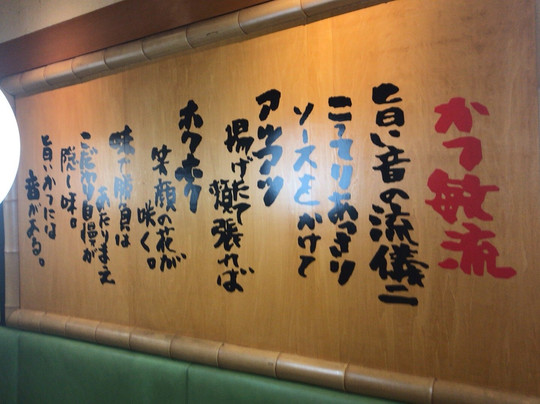 かつ敏流
旨い音の流儀二
こってりあっさり
ソースをかけて
アツアツ
揚げたて頬張れば
ホクホク
笑顔の花が
咲く。
味で勝負は
あたりまえ
こだわり自慢が
隠し味。
旨いかつには
音がある。